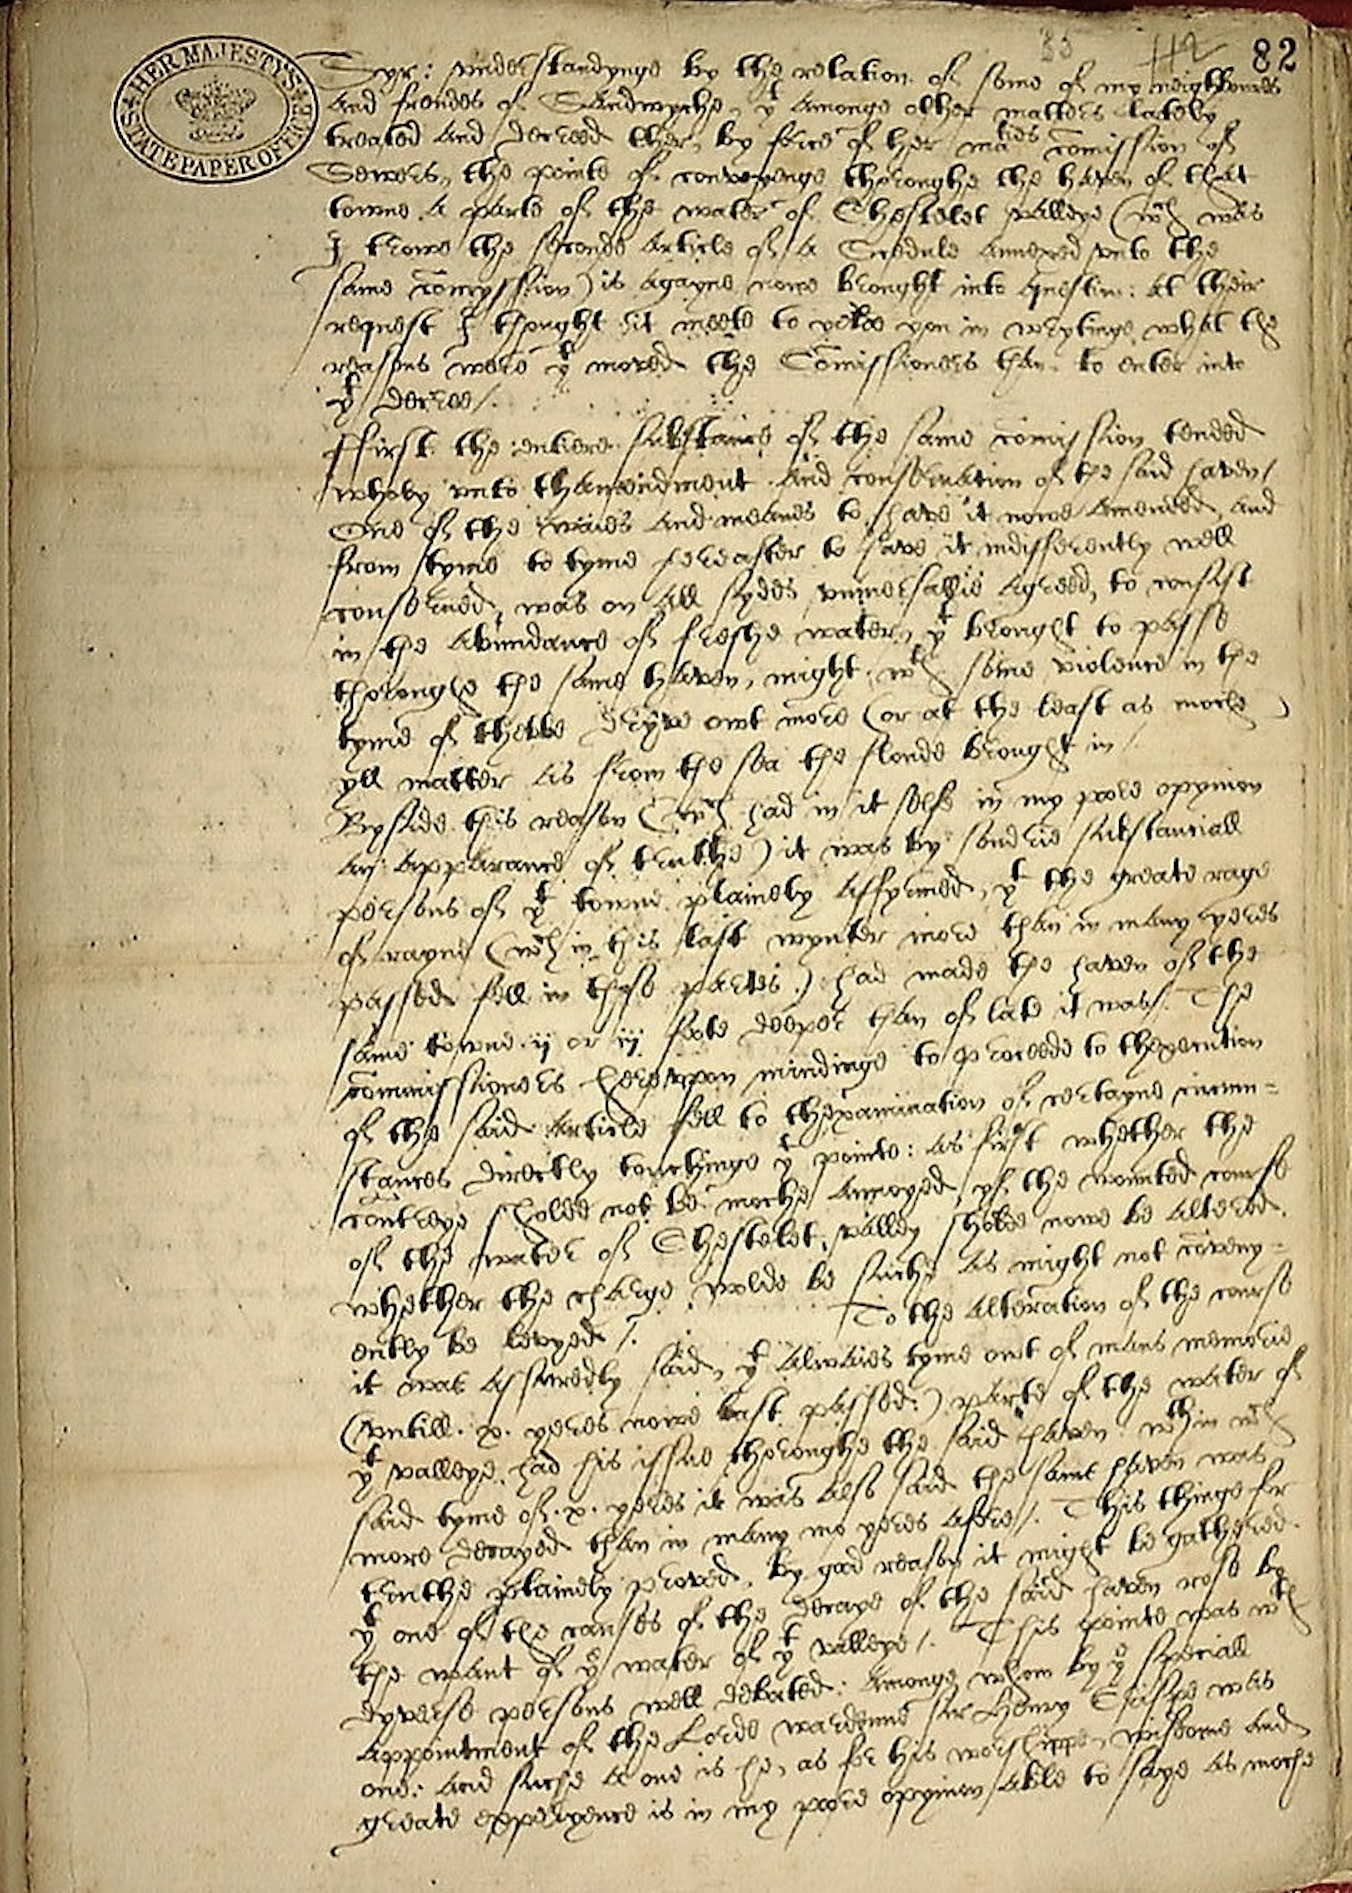 HER MAJESTY'S
STATE PAPER OFFICE
33 112 82
Syr: understandynge by the relation of some of my neighboures
and frendes of Sandwyche, yt amonge other matters lately
treated and decreed ther, by force of her maties comission of
Sewers, the pointe of conveyenge thoroughe the haven of that
towne a parte of the water of Chestelet valleye (wch was
I trowe the seconde article of a Scedule annexed unto the
same comyssion) is agayne nowe brought into question: at their
request I thought it meete to you in wrytinge what the
reasons were yt moved the Comissioners than to enter into
yt decree /.
Ffirst the entiere substance of the same comission tended
wholy unto thamendment and conservation of the said haven /
One of the waies and meanes to have it nowe amended, and
from tyme to tyme hereafter to have it indifferently well
conserved, was on all sydes universallie agreed, to consist
in the abundance of freshe water, yt brought to passe
thoroughe the same haven, might wth some violence in the
tyme of thebbe dryve owt more (or at the least as moche)
yll matter as from the sea the floude brought in /.
Byside this reason (wch had in it selfe in my poore opynion
an apparance of truthe) it was by sonderie substantiall
persons of yt towne plainely affyrmed, yt the greate rage
of rayne (wch in this last wynter more than in many yeres
passed fell in these partes) had made the haven of the
same towne ij or iij foote deeper than of late it was /. The
commissioners hereuppon mindinge to proceede to thexecution
of the said article fell to thexamination of certayne circum=
stances directly touchinge yt pointe: as first whether the
contreye sholde not be moche annoyed, yf the wonted course
of the water of Chestelet valley sholde nowe be altered.
whether the charge wolde be suche as might not conveny=
ently be levyed /. To the alteration of the course
it was assuredly said, yt alwaies tyme owt of mans memorie
(untill .x. yeres nowe last passed) parte of the water of
yt valleye had his issue thoroughe the said haven: wthin wch
said tyme of .x. yeres it was also said the same haven was
more decayed than in many mo yeres afore /. This thinge for
truthe plainely proved, by good reason it might be gathered
yt one of the causes of the decaye of the said haven rose by
the want of ye water of yt valleye /. This pointe was wth
dyverse persons well debated: amonge whom by ye speciall
appointment of the Lorde wardenne Sir Henry was
one: and suche a one is he, as for his worshippe, wisdome and
greate experyence is in my poore opynion able to saye as moche